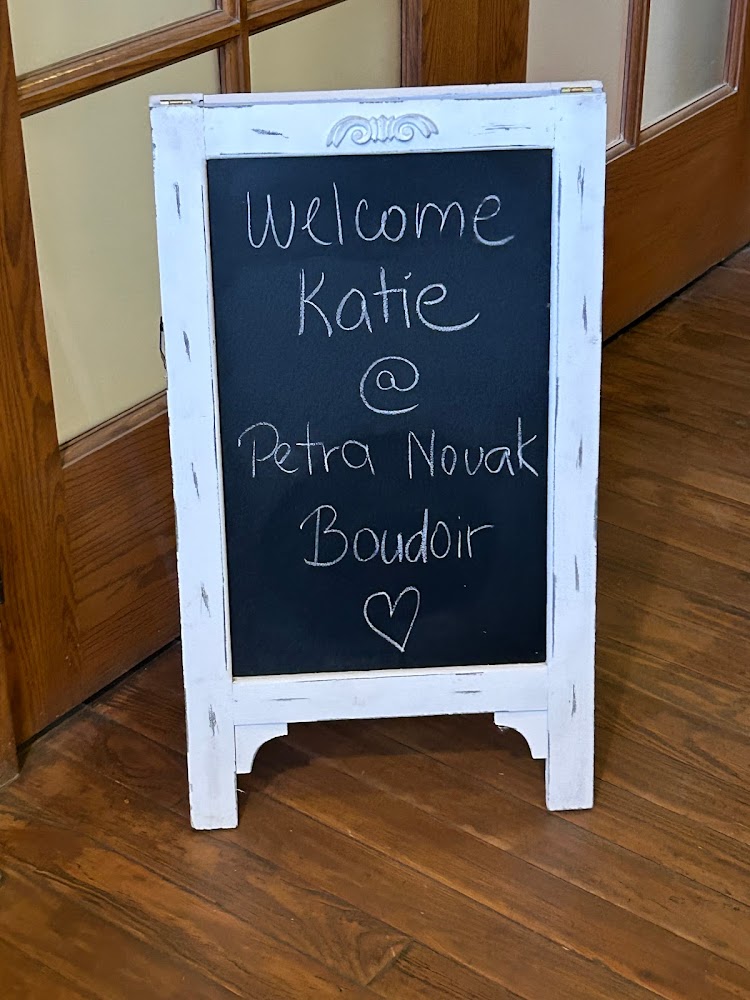 Welcome
Katie
@
Petra Novak
Boudoir